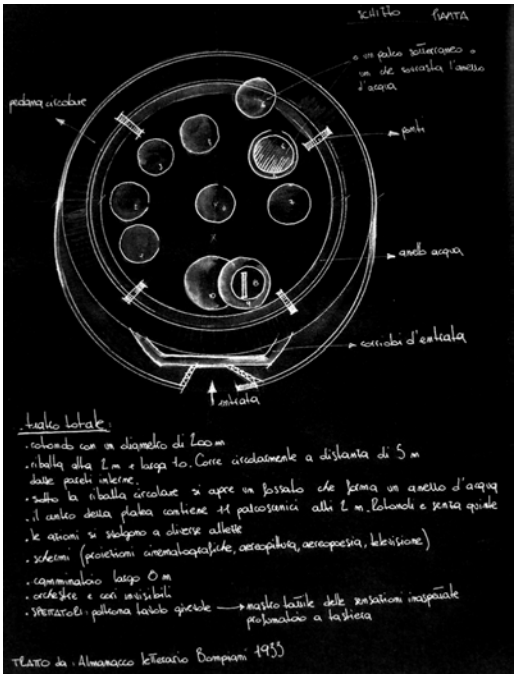 SCHIZZO PIANTA
o un palco sotterraneo o
un che sovrasta l'anello
d'acqua
pedana circolare
ponti
anello acqua
corridoi d'entrata
entrata
teatro totale:
. rotondo con un diametro di 200 m
. ribalta alta 2 m e larga 10. Corre circolarmente a distanza di 5 m
dalle pareti interne.
. sotto la ribalta circolare si apre un fossato che forma un anello d'acqua
. il centro della platea contiene 11 palcoscenici alti 2 m. Rotondi e senza quinte
. le azioni si svolgono a diverse altezze
. schermi (proiezioni cinematografiche, aereopittura, aereopoesia, televisione)
. camminatoio largo 8 m
. orchestre e cori invisibili
. SPETTATORI: poltrona tavolo girevole → nastro tattile delle sensazioni inaspettate
profumatoio a tastiera
TRATTO da: Almanacco letterario Bompiani 1933